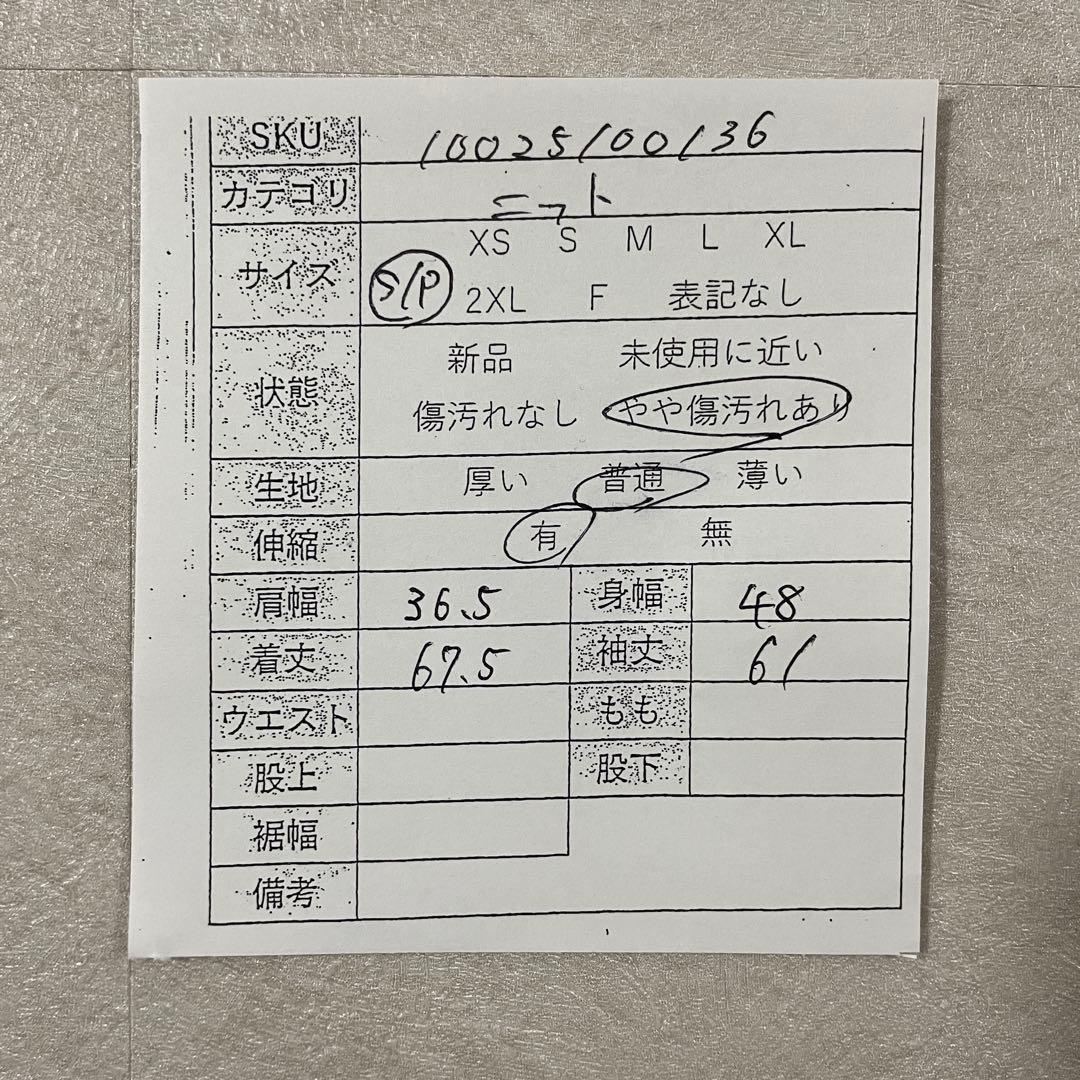 SKU 10025100136
カテゴリ ニット
サイズ XS S M L XL
S/P 2XL F 表記なし
状態 新品 未使用に近い
傷汚れなし やや傷汚れあり
生地 厚い 普通 薄い
伸縮 有 無
肩幅 36.5 身幅 48
着丈 67.5 袖丈 61
ウエスト もも
股上 股下
裾幅
備考